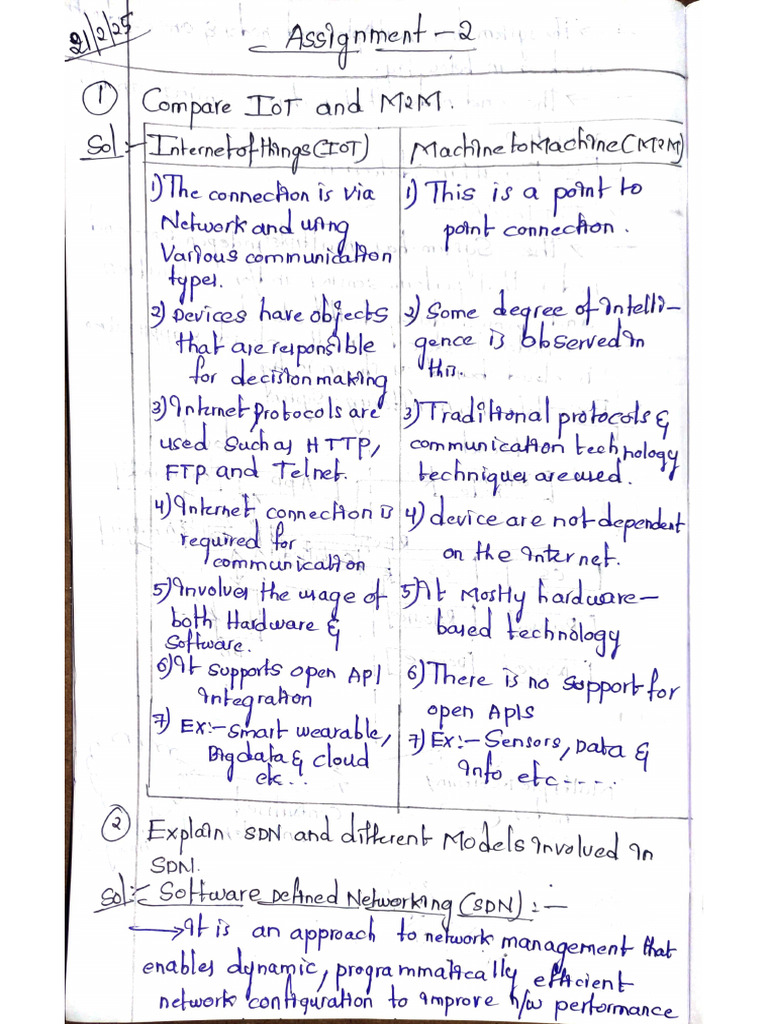 21/2/25
Assignment-2
① Compare IoT and M2M.
Sol:- Internet of things (IOT) Machine to Machine (M2M)
1) The connection is via
Network and using
Various communication
types.
1) This is a point to
point connection.
2) Devices have objects
that are responsible
for decision making
2) Some degree of intelli-
gence is observed in
this.
3) Internet protocols are
used such as HTTP,
FTP and Telnet.
3) Traditional protocols &
communication technology
techniques are used.
4) Internet connection is
required for
communication.
4) device are not dependent
on the internet.
5) Involves the usage of
both Hardware &
Software.
5) It Mostly hardware-
based technology
6) It supports open API
integration
6) There is no support for
open APIs
7) Ex:- Smart wearable,
Big data & cloud
etc...
7) Ex:- Sensors, Data &
Info etc.....
② Explain SDN and different Models involved in
SDN.
Sol:- Software Defined Networking (SDN):-
→ It is an approach to network management that
enables dynamic, programmatically efficient
network configuration to improve n/w performance